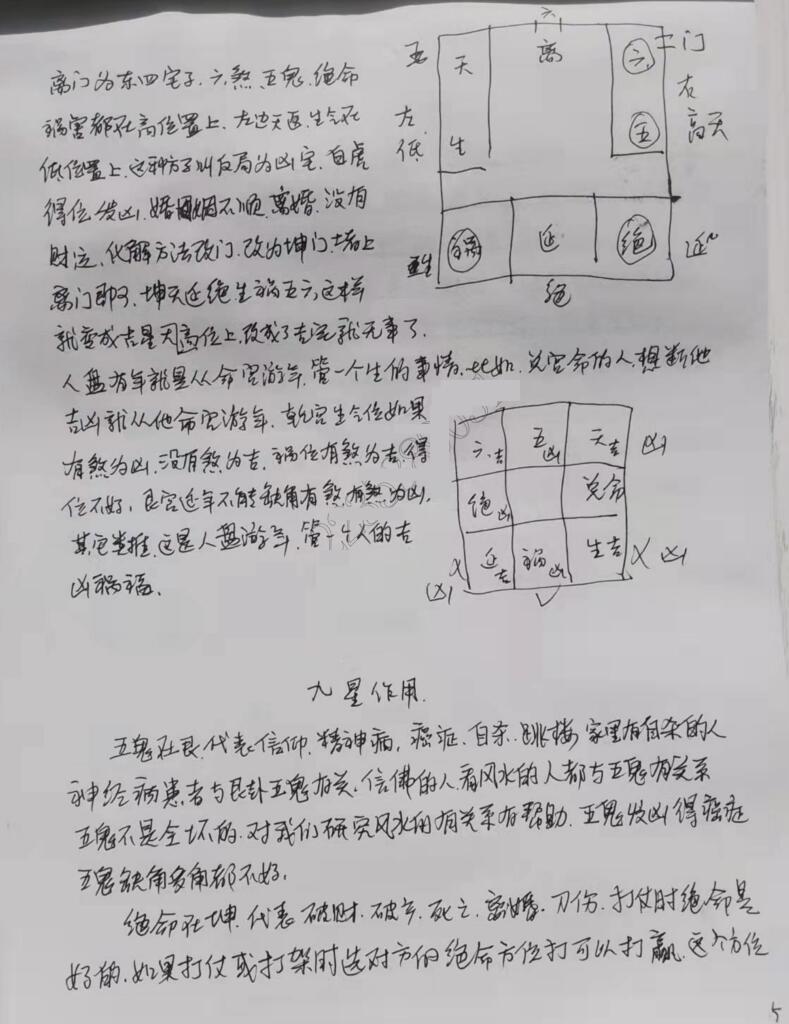 离门为东四宅子.六煞.五鬼.绝命
祸害都在高位置上.左边天延.生气在
低位置上.这种房子叫反局为凶宅.白虎
得位发凶.婚姻不顺.离婚.没有
财运.化解方法改门.改为坤门.堵上
离门即可.坤天延绝生祸五六.这样
就变成吉星天高位上.改成了吉宅就无事了.
人盘有年就是从命宫游年.管一个生的事情.比如.兑宫命的人.想断他
吉凶就从他命宫游年.乾宫生气位如果
有煞为凶.没有煞为吉.祸位有煞为吉.得
位不好.艮宫延年不能缺角有煞.有煞为凶.
其它类推.这是人盘游年.管一个人的吉
凶祸福.
六
五 天 离 六 门
右
左 五 高天
低 生
祸 延 绝 延
生
绝
六吉 五凶 天吉 凶
绝凶 兑命
延吉 祸凶 生吉 凶
凶
九星作用.
五鬼在艮.代表信仰.精神病.癌症.自杀.跳楼.家里有自杀的人
神经病患者与艮卦五鬼有关.信佛的人.看风水的人都与五鬼有关系
五鬼不是全坏的.对我们研究风水的有关系有帮助.五鬼发凶得癌症
五鬼缺角多角都不好.
绝命在坤.代表破财.破产.死亡.离婚.刀伤.打仗时绝命是
好的.如果打仗或打架时选对方的绝命方位打可以打赢.这个方位
5